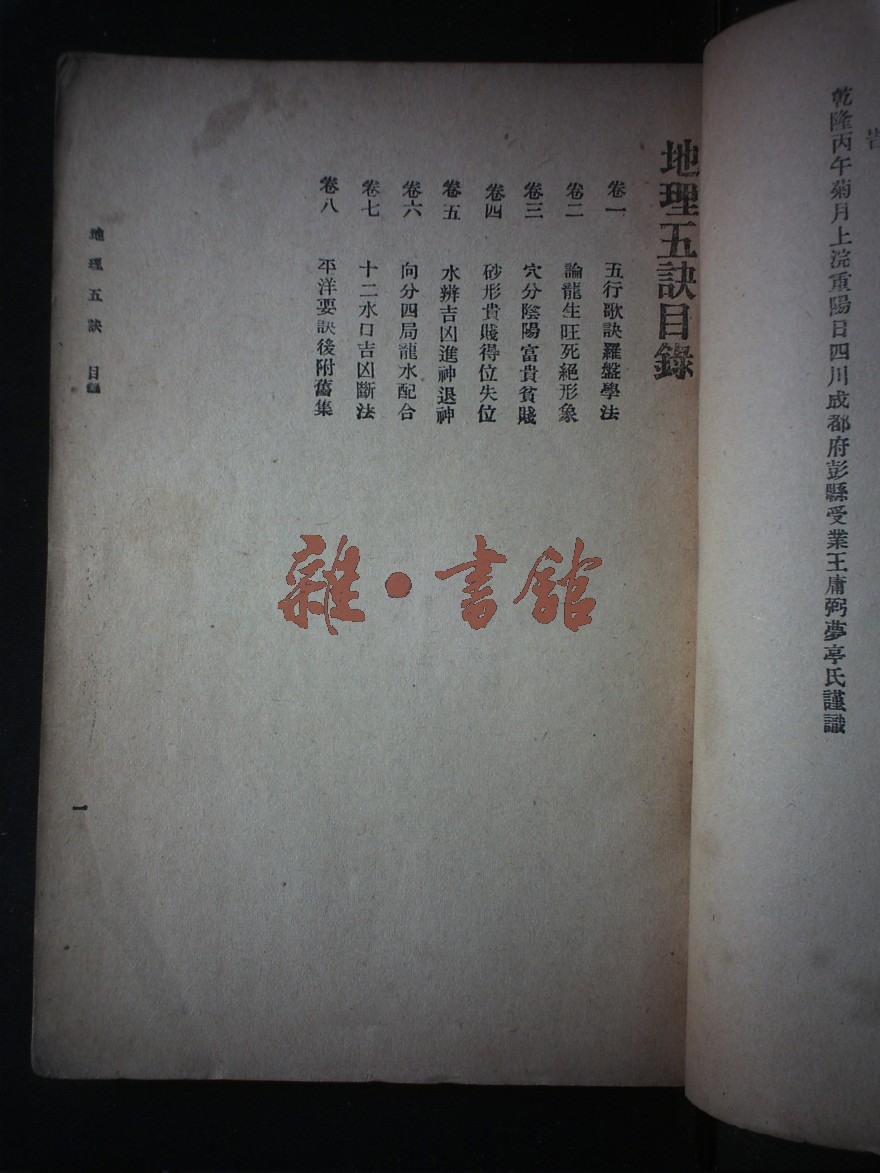 乾隆丙午菊月上浣重陽日四川成都府彭縣受業王庸弼夢亭氏謹識
地理五訣目錄
卷一 五行歌訣羅盤學法
卷二 論龍生旺死絕形象
卷三 穴分陰陽富貴貧賤
卷四 砂形貴賤得位失位
卷五 水辨吉凶進神退神
卷六 向分四局龍水配合
卷七 十二水口吉凶斷法
卷八 平洋要訣後附舊集
地理五訣 目錄
一
雜·書館